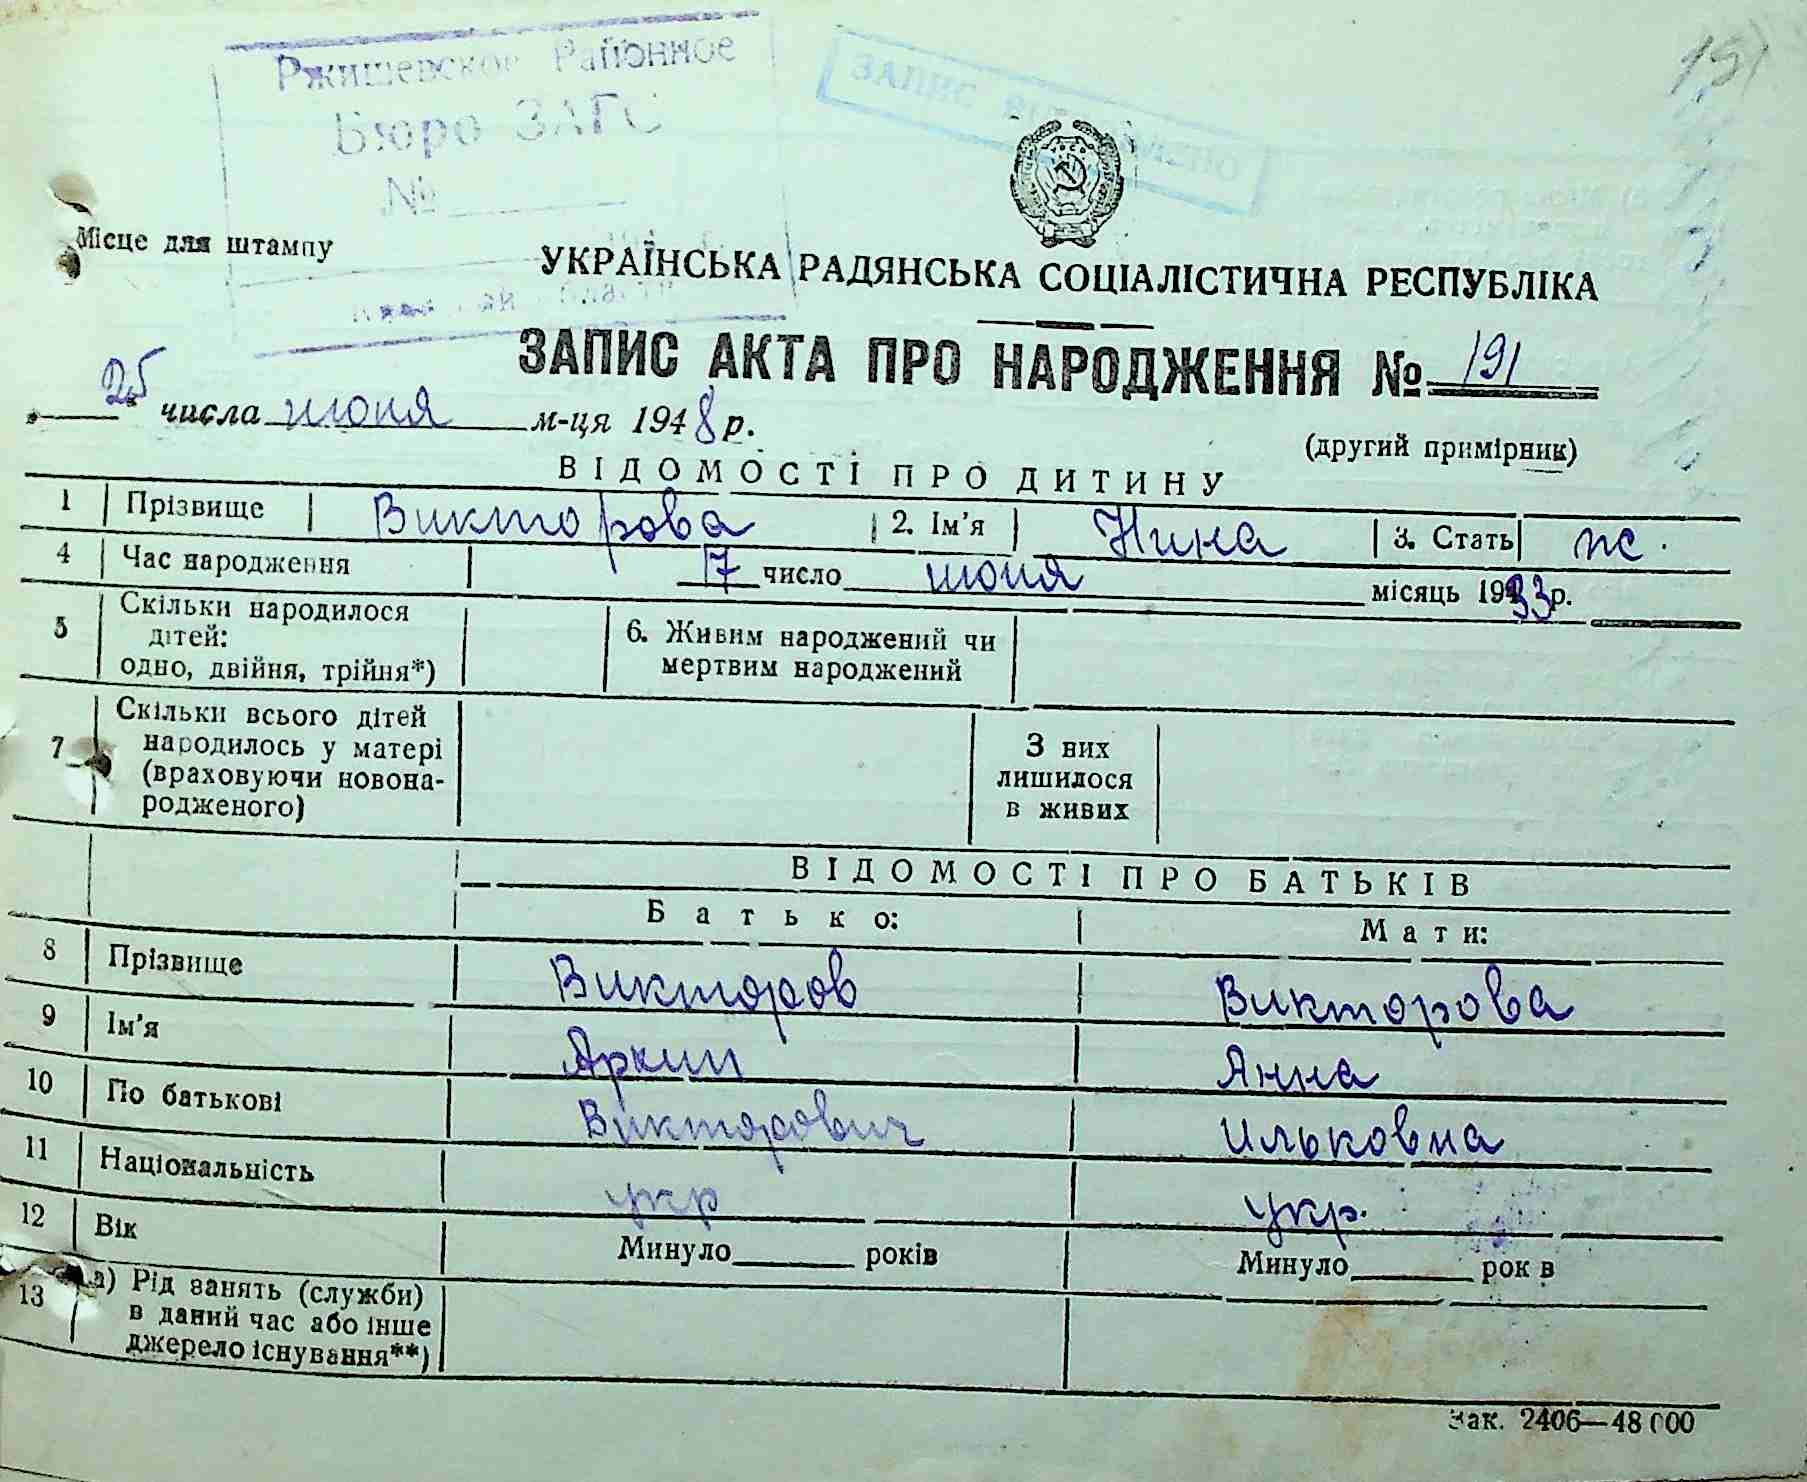 151
Ржищевское Районное
Бюро ЗАГС
№
ЗАПИС
Місце для штампу
УКРАЇНСЬКА РАДЯНСЬКА СОЦІАЛІСТИЧНА РЕСПУБЛІКА
ЗАПИС АКТА ПРО НАРОДЖЕННЯ № 191
„25" числа июня м-ця 1948 р.
(другий примірник)
ВІДОМОСТІ ПРО ДИТИНУ
1 Прізвище Викторова 2. Ім'я Нина 3. Стать ж.
4 Час народження 7 число июня місяць 1933 р.
5 Скільки народилося
дітей:
одно, двійня, трійня*)
6. Живим народжений чи
мертвим народжений
7 Скільки всього дітей
народилось у матері
(враховуючи новона-
родженого)
З них
лишилося
в живих
ВІДОМОСТІ ПРО БАТЬКІВ
Батько: Мати:
8 Прізвище Викторов Викторова
9 Ім'я Яркип Анна
10 По батькові Викторович Ильковна
11 Національність укр укр.
12 Вік Минуло років Минуло рок в
13 а) Рід занять (служби)
в даний час або інше
джерело існування**)
Зак. 2406—48 000